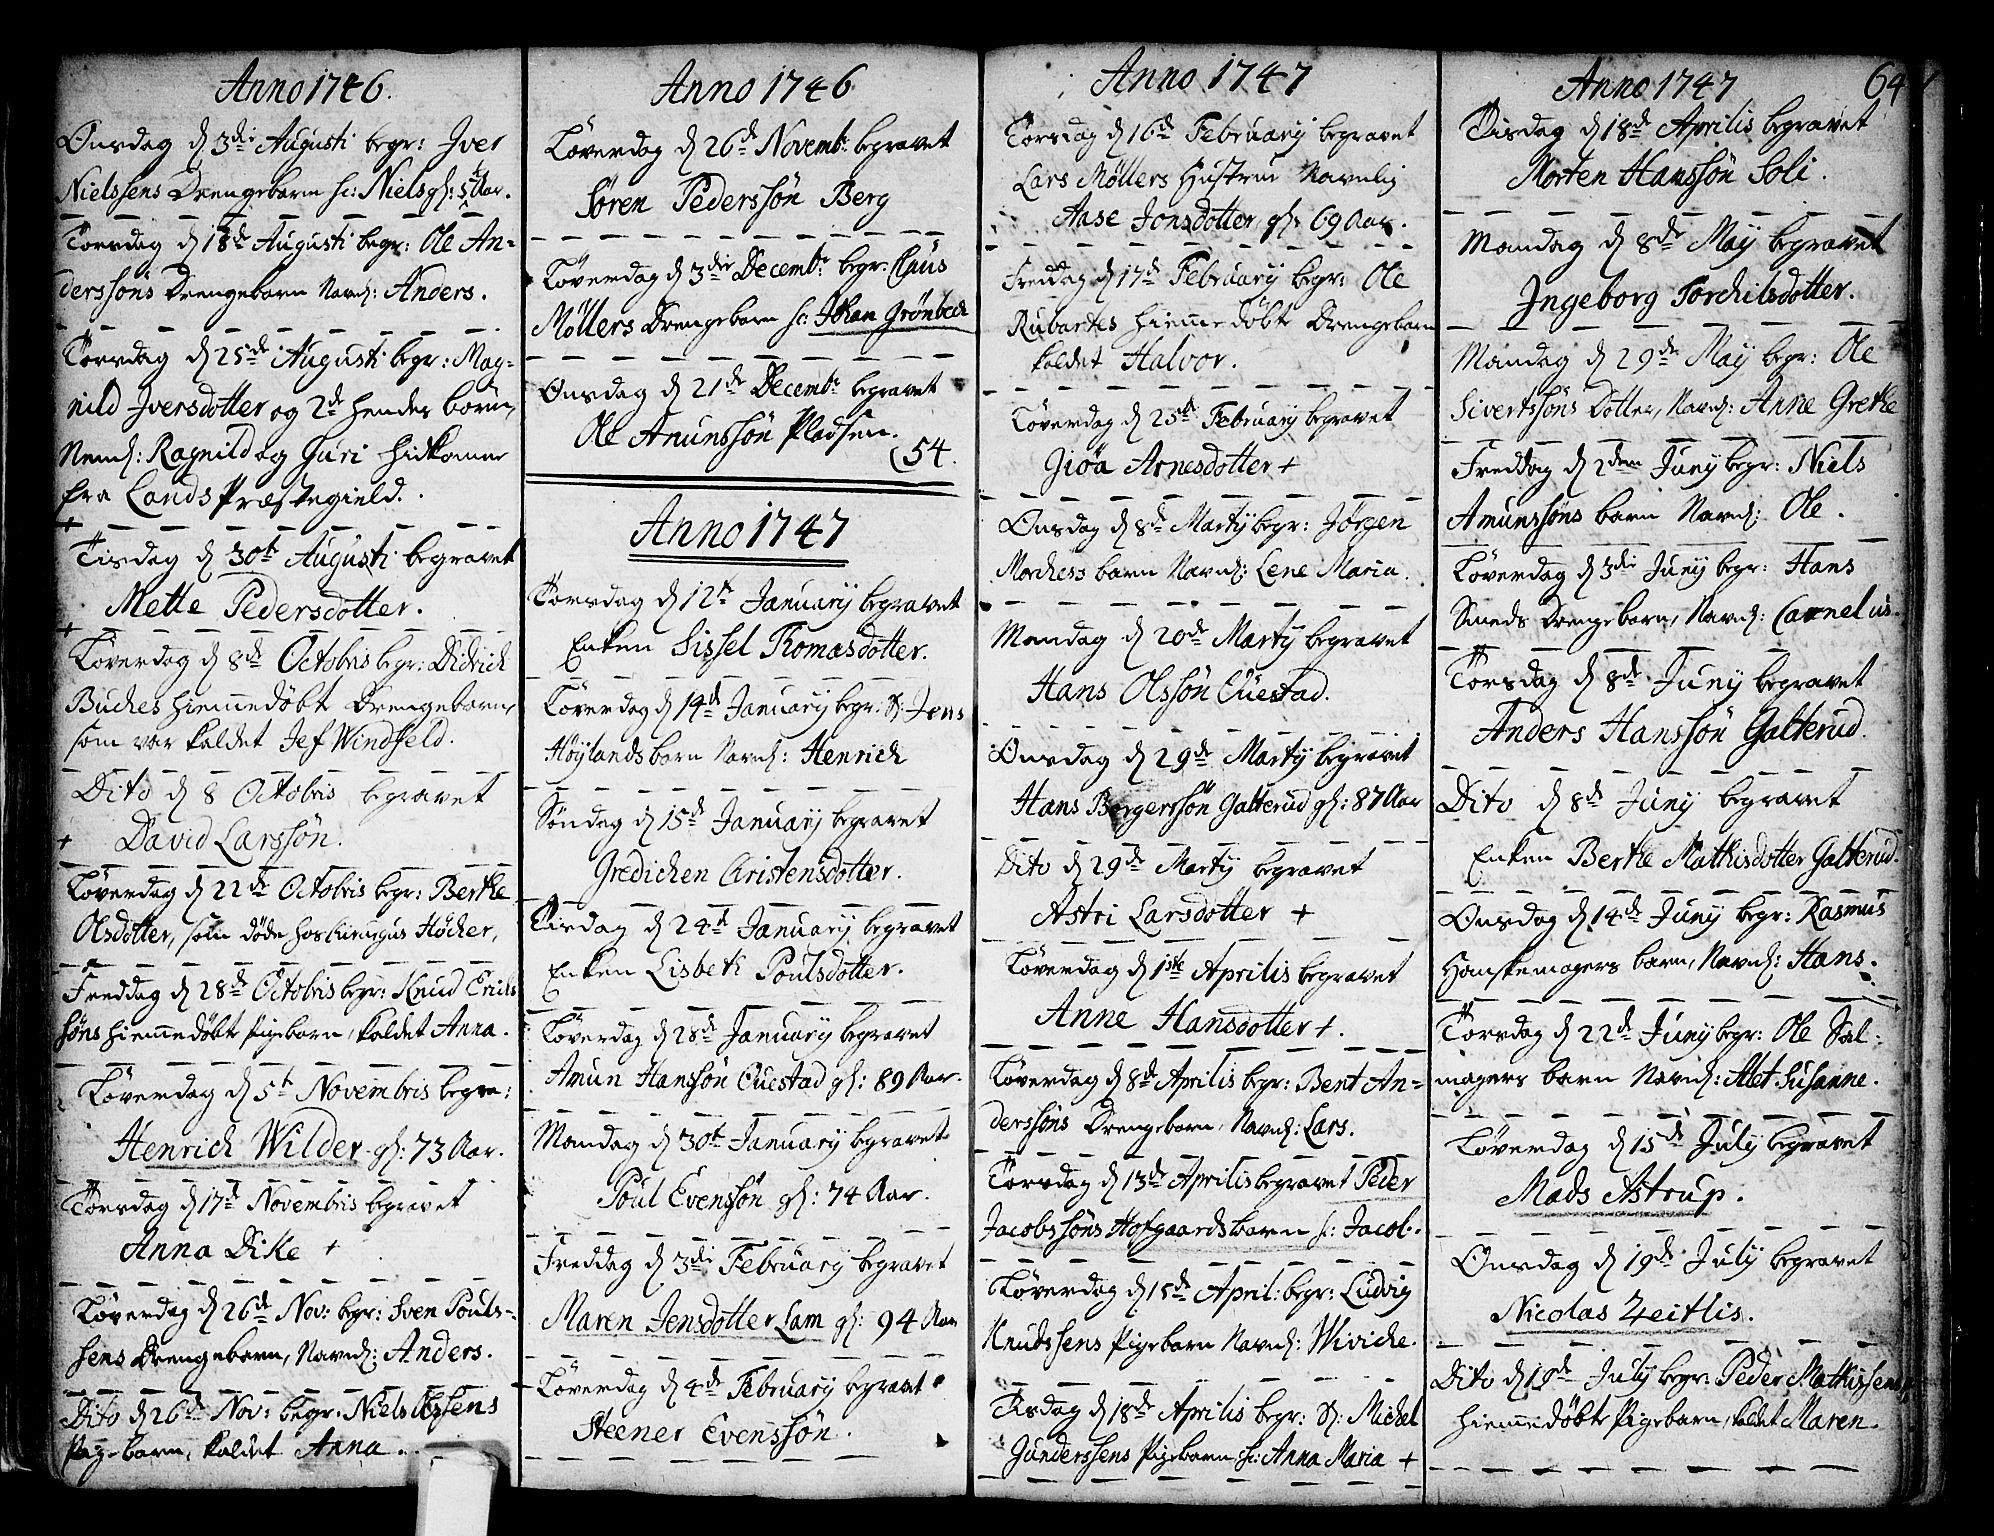 Anno 1746.
Onsdag d 3die Augusti begr: Jver
Nielssens Drengebarn h: Niels gl: 5 Aar.
Torsdag d 18de Augusti begr: Ole An=
derssöns Drengebarn Navnl: Anders.
Torsdag d 25de Augusti begr: Mag=
nild Jversdotter og 2de hendes börn,
Neml: Ragnild og Guri hidkomne
fra Lands Præstegield.
Tisdag d 30te Augusti begravet
Mette Pedersdotter.
Löverdag d 8de Octobris begr: Didrich
Buches hiemmedöbt Drengebarn,
som var kaldet Jef Windfeld.
Dito d 8 Octobris begravet
+ David Larssön.
Löverdag d 22de Octobris begr: Berthe
Olsdotter, som döde hos Höcker,
Freddag d 28de Octobris begr: Knud Erichs
söns hiemmedöbte Pigebarn, kaldet Anna.
Löverdag d 5te Novembris begra:
Henrich Wilder gl: 73 Aar.
Torsdag d 17de Novembris begravet
Anna Dike +
Löverdag d 26de Nov: begr: Sven Pouls=
sens Drengebarn, Navnl: Anders.
Dito d 26de Nov: begr: Niels Olssens
Pigebarn, kaldet Anna.
Anno 1746
Löverdag d 26de Novemb: begravet
Sören Pederssön Berg
Löverdag d 3die Decemb: begr: Claus
Möllers Drengebarn h: Johan Grönbech
Onsdag d 21de Decemb: begravet
Ole Amunssön Pladsen.
(54.
Anno 1747
Torsdag d 12te January begravet
Enken Sissel Thomasdotter.
Löverdag d 14de January begr. S: Jens
Höylands barn Navnl: Henrich
Söndag d 15de January begravet
Gredichen Christensdotter.
Tirsdag d 24de January begravet
Enken Lisbeth Poulsdotter.
Löverdag d 28de January begravet
Amun Hanssön Cuestad gl: 89 Aar.
Mandag d 30te January begravet
Poul Evenssön gl: 74 Aar.
Freddag d 3die February begravet
Maren Jensdotter Lam gl: 94 Aar
Löverdag d 4de February begravet
Steener Evenssön.
Anno 1747
Torsdag d 16de February begravet
Lars Möllers Hustrue Navnlig
Aase Jonsdotter gl: 69 Aar.
Fredag d 17de February begr: Ole
Rubartes hiemmedöbte Drengebarn
kaldet Halvor.
Löverdag d 25de February begravet
Giöa Arnesdotter +
Onsdag d 8de Marty begr: Jörgen
Morchess barn Navnl: Lene Maria.
Mandag d 20de Marty begravet
Hans Olssön Cuestad.
Onsdag d 29de Marty begravet
Hans Bergerssön Galterud gl: 87 Aar
Dito d 29de Marty begravet
Astri Larsdotter +
Löverdag d 1ste Aprilis begravet
Anne Hansdotter +.
Löverdag d 8de Aprilis begr: Bent An=
derssöns Drengebarn, Navnl: Lars.
Torsdag d 13de Aprilis begravet Peder
Jacobssöns Hofgaards barn h: Jacob.
Löverdag d 15de April: begr: Ludvig
Knudssens Pigebarn Navnl: Wiviche.
Tisdag d 18de Aprilis begr: S: Michel
Gunderssens Pigebarn h: Anna Maria +
Anno 1747
64
Tisdag d 18de Aprilis begravet
Morten Hanssön Soli.
Mandag d 8de May begravet
Jngeborg Torchilsdotter.
Mandag d 29de May begr: Ole
Sivertssöns Dotter, Navnl: Anne Grethe
Freddag d 2den Juny begr: Niels
Amunssöns barn Navnl: Ole.
Löverdag d 3die Juny begr: Hans
Smeds Drengebarn, Navnl: Carnelius.
Torsdag d 8de Juny begravet
Anders Hanssön Galterud.
Dito d 8de Juny begravet
Enken Berthe Mathisdotter Galterud.
Onsdag d 14de Juny begr: Rasmus
Hanskemagers barn, Navnl: Hans.
Torsdag d 22de Juny begr: Ole Sal:
magers barn Navnl: Alet Susanne.
Löverdag d 15de July begravet
Mads Astrup.
Onsdag d 19de July begravet
Nicolas Zeitlis.
Dito d 19de July begr: Peder Mathissens
hiemmedöbte Pigebarn, kaldet Maren.